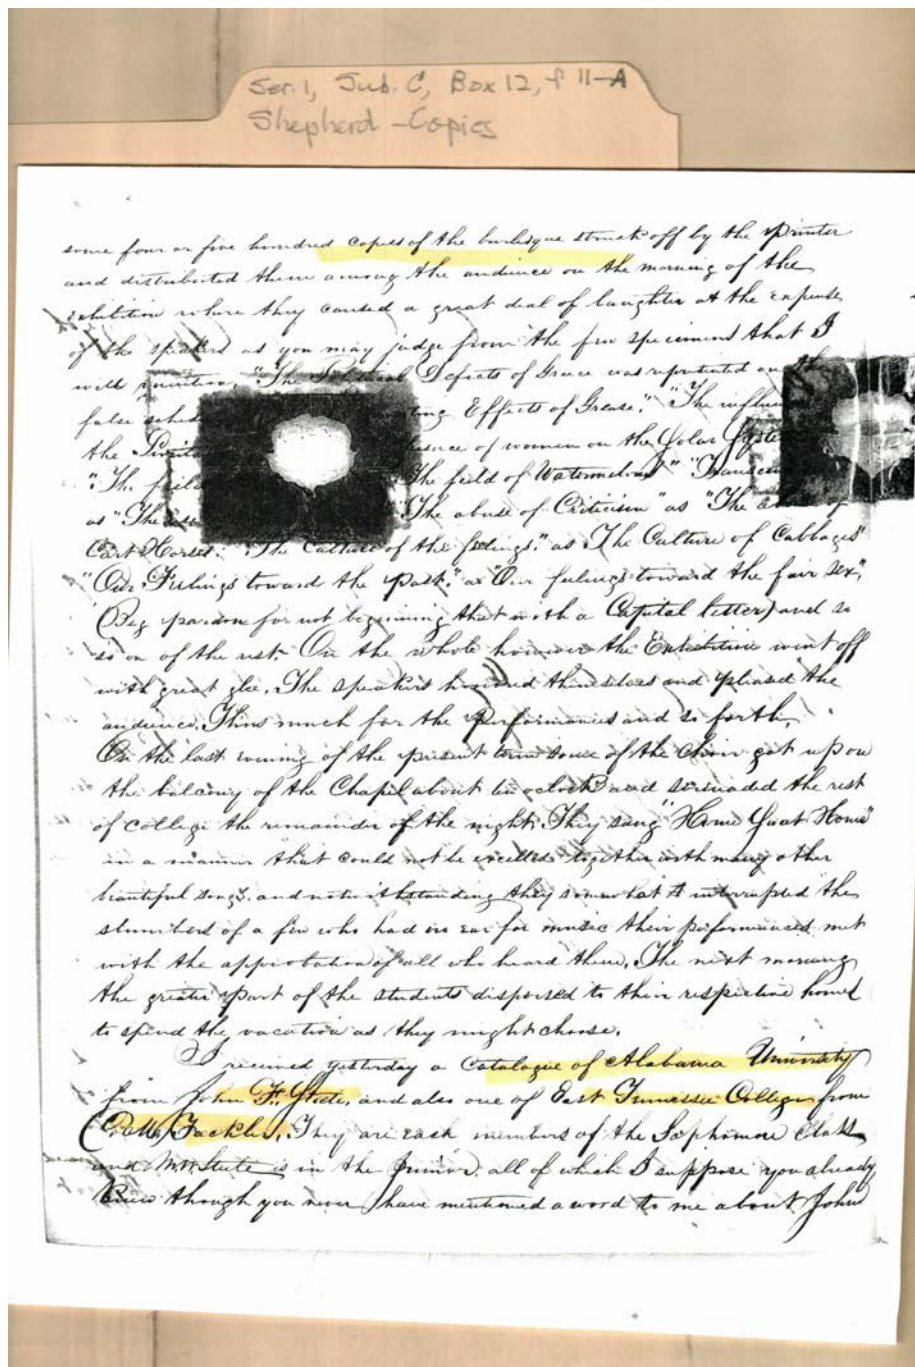 Ser. 1, Sub. C, Box 12, f 11-A
Shepherd - Copies
some four or five hundred copies of the burlesque struck off by the Printer
and distributed them among the audience on the morning of the
exhibition where they caused a great deal of laughter at the expense
of the speakers as you may judge from the few specimens that I
will mention. "The Political Defects of Greece was represented on the
false sched ting Effects of Grease." "The influ
the of women on the Solar Syste
"The feild The feild of Watermelons" "Transcen
as "The "The abuse of Criticism" as "The
Cart Horses." "The Culture of the feelings." as "The Culture of Cabbages"
"Our Feelings toward the past." as "Our feelings toward the fair sex",
(Beg pardon for not beginning that with a Capital letter) and so
so on of the rest. On the whole however the Exhibition went off
with great glee. The speakers honored themselves and pleased the
audience. Thus much for the Performances and so forth.
On the last evening of the present term some of the Choir got up on
the balcony of the Chapel about ten oclock and serenaded the rest
of college the remainder of the night. They sang "Home Sweet Home"
in a manner that could not be excelled together with many other
beautiful songs. and notwithstanding they somewhat interrupted the
slumbers of a few who had no ear for music their performances met
with the approbation of all who heard them. The next morning
the greater part of the students dispersed to their respective homes
to spend the vacation as they might choose.
I received yesterday a Catalogue of Alabama University
from John F. Steele, and also one of East Tennessee College from
Fackler. They are each members of the Sophomore Class
and Steele is in the Junior. all of which I suppose you already
knew though you never have mentioned a word to me about John